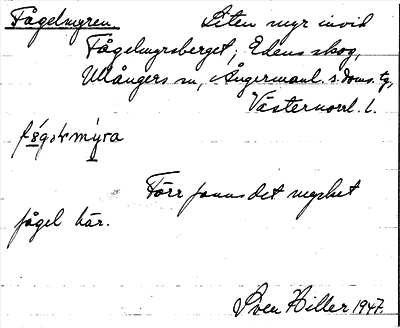 Fågelmyren. Liten myr invid
Fågelmyrsberget, Edens skog,
Ullångers sn, Ångermanl. s. doms. tg,
Västernorrl. l.
Förr fanns det mycket
fågel här.
Sven Hiller 1947.